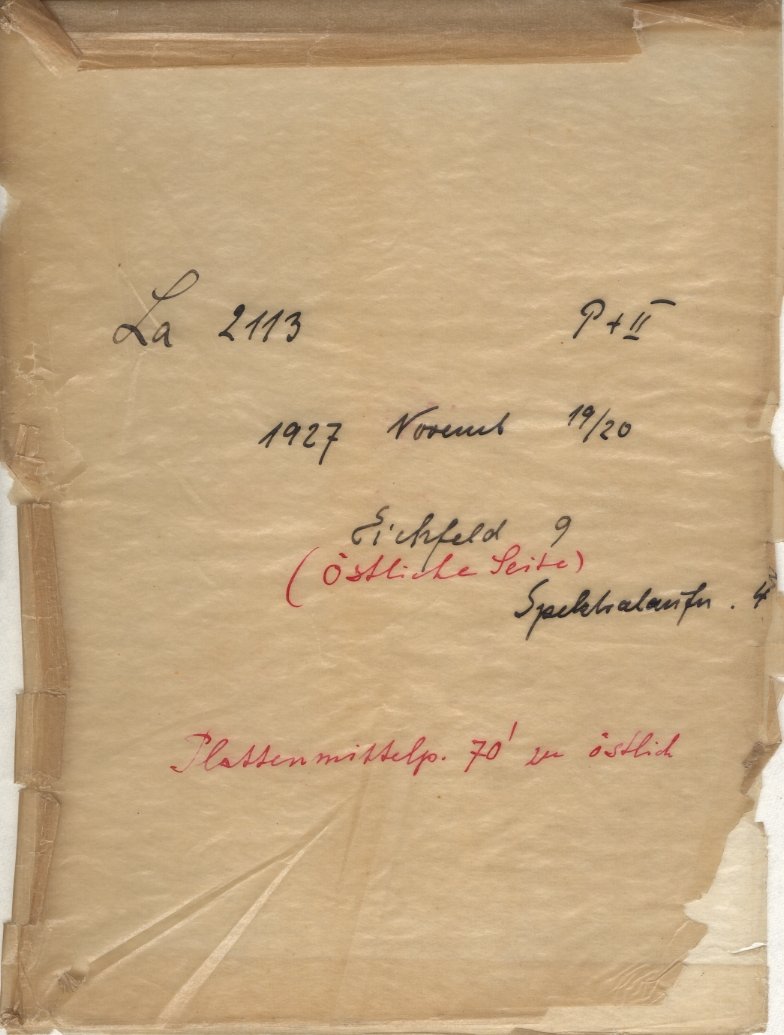 La 2113 P + II
1927 Novemb 19/20
Eichfeld 9
(Östliche Seite)
Spektralaufn. 4
Plattenmittelp. 70' zu östlich